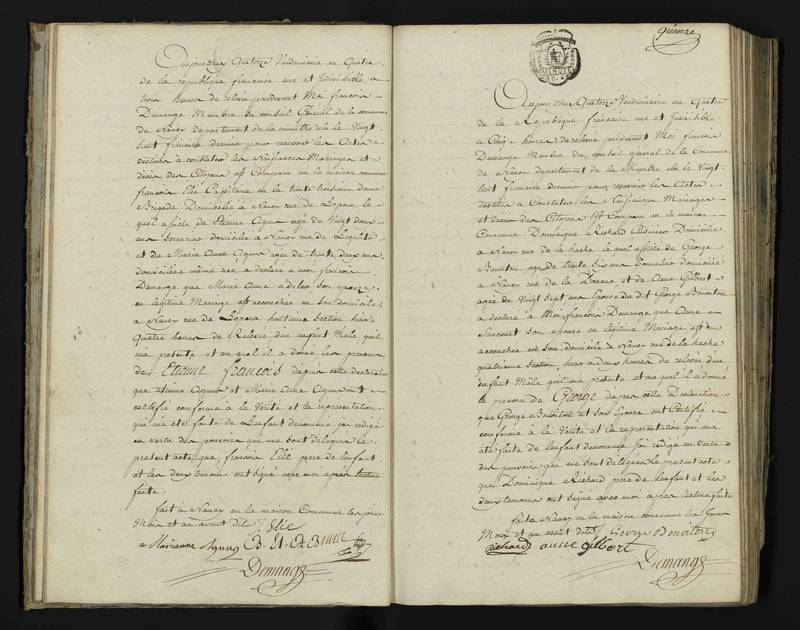 Aujourd'huy Quatorze Vendemiaire an Quatre
de la republique francaise une et Indivisible a
trois heures de relevé pardevant Moi francois
Demange Membre du conseil Général de la commune
de Nancy departement de la meurthe élu le Vingt
huit frimaire dernier pour recevoir les Actes
destinés a constater les Naissances Mariages et
décès des Citoyens est Comparu en la maison commune
francois Elié Capitaine en la trente troisieme demie
Brigade Domicilié a Nancy rue de
quel assisté de Etienne agé de Vingt deux
ans domicilié a Nancy rue de L'egalité
et de Marie Anne agée de trente deux ans
domiciliée même rue a déclaré a moi francois
Demange que Marie Anne son epouse
en legitime Mariage est accouchée en Son domicile
a Nancy rue de huitieme Section hier a
Quatre heures de Relevée, d'un enfant Male quil
ma presenté et au quel il a donné les prenoms
de Etienne francois daprès cette declaration
que etienne et Marie Anne ont
certifié conforme a la Vérité et la représentation
qui ma été faite de L'enfant denommé jai rédigé
en vertu des pouvoirs qui me sont delegués le
present acte que francois Elié pere de lenfant
et les deux temoins ont signé avec moi après lecture
faite
fait a Nancy en la maison Commune les jour
Mois et an avant dits Elié
Marianne
Demange
quinze
Aujourd'huy Quatorze Vendemiaire an Quatre
de la Republique francaise une et Indivisible
a Cinq heures de relevée pardevant Moi francois
Demange Membre du conseil général de la Commune
de Nancy departement de la Meurthe élu le Vingt
huit frimaire dernier pour recevoir les Actes
destinés a Constater les Naissances Mariages
et décès des Citoyens est Comparu en la maison
Commune Dominique Richard Cuisinier Domicilié
a Nancy rue de la hache lequel assisté de George
agé de trente six ans domicilié
a Nancy rue de la et de Anne Gilbert
agée de Vingt Sept ans Epouse du dit George
a declaré a Moi francois Demange que Anne
Son epouse en légitime Mariage est
accouchée en son domicile a Nancy rue de la hache
quatrieme Section, hier a deux heures de relevée dun
enfant Mâle quil ma presenté et au quel il a donné
le prenom de George daprès cette Declaration
que George et Son Epouse ont Certifié
conforme à la Vérité et la représentation qui ma
été faite de lenfant denommé jai rédigé en vertu
des pouvoirs qui me sont delegués Le present acte
que Dominique Richard pere de lenfant et les
deux temoins ont signé avec moi après lecture faite
fait a Nancy en la maison commune les Jour
Mois et an avant dits George
Richard anne gilbert
Demange